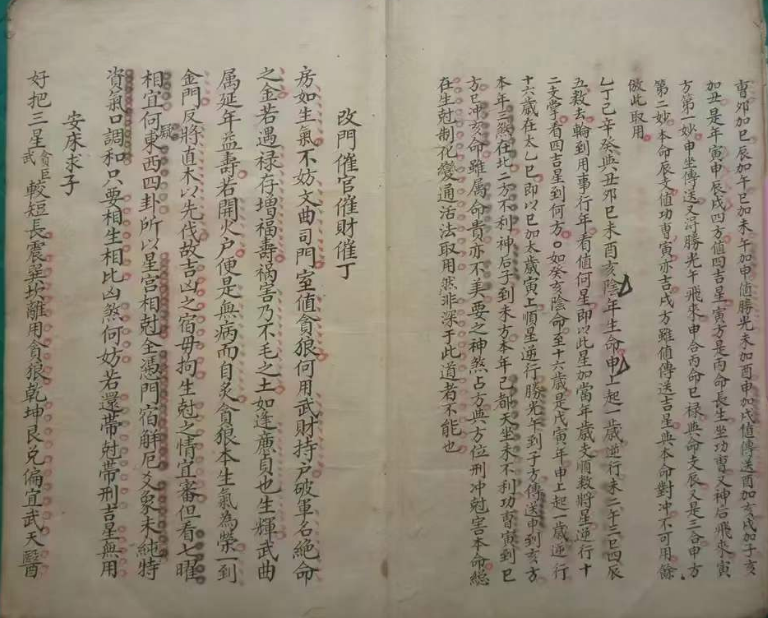 曹夘加巳辰加午巳加未午加申值勝光未加酉申加戌值傳送酉加亥戌加子亥
加丑是年寅申辰戌四方值四吉星寅方是丙命長生坐功曹又神后飛來寅
方第一妙申坐傳送又淂勝光午飛來申合丙命巳禄與命支辰又是三合申方
第二妙本命辰支值功曹寅亦吉戌方雖值傳送吉星與本命對冲不可用餘
倣此取用
乙丁己辛癸與丑夘巳未酉亥陰年生命申上起一歲逆行未二午三巳四辰
五数去輪到用事行年看值何星即以此星加當年歲支順数將星逆行十
二支掌看四吉星到何方〇如癸亥陰命至十六歲是戊寅年申上起一歲逆行
十六歲在太乙巳即以巳加太歲寅上順星逆行勝光午到子方傳送申到亥方
本年三煞在北二方不利神后子到未方本年己都天坐未不利功曹寅到巳
方巳冲亥命雖属命貴亦不美要之神煞占方與方位刑冲尅害本命總
在生尅制化變通活法取用然非深于此道者不能也
改門催官催財催丁
房如生氣不妨文曲司門室值貪狼何用武財持户破軍名絶命
之金若遇禄存增福壽禍害乃不毛之土如逢廉貞也生輝武曲
属延年益壽若開火户便是無病而自炙貪狼本生氣為榮一到
金門反將直木以先伐故吉凶之宿毋拘生尅之情宜審但看七曜
相宜何疑東西四卦所以星宮相尅全憑門宿解厄爻象未純特
資氣口調和只要相生相比凶煞何妨若還帶尅帶刑吉星無用
安床求子
好把三星貪巨武較短長震巽坎離用貪狼乾坤艮兑偏宜武天醫